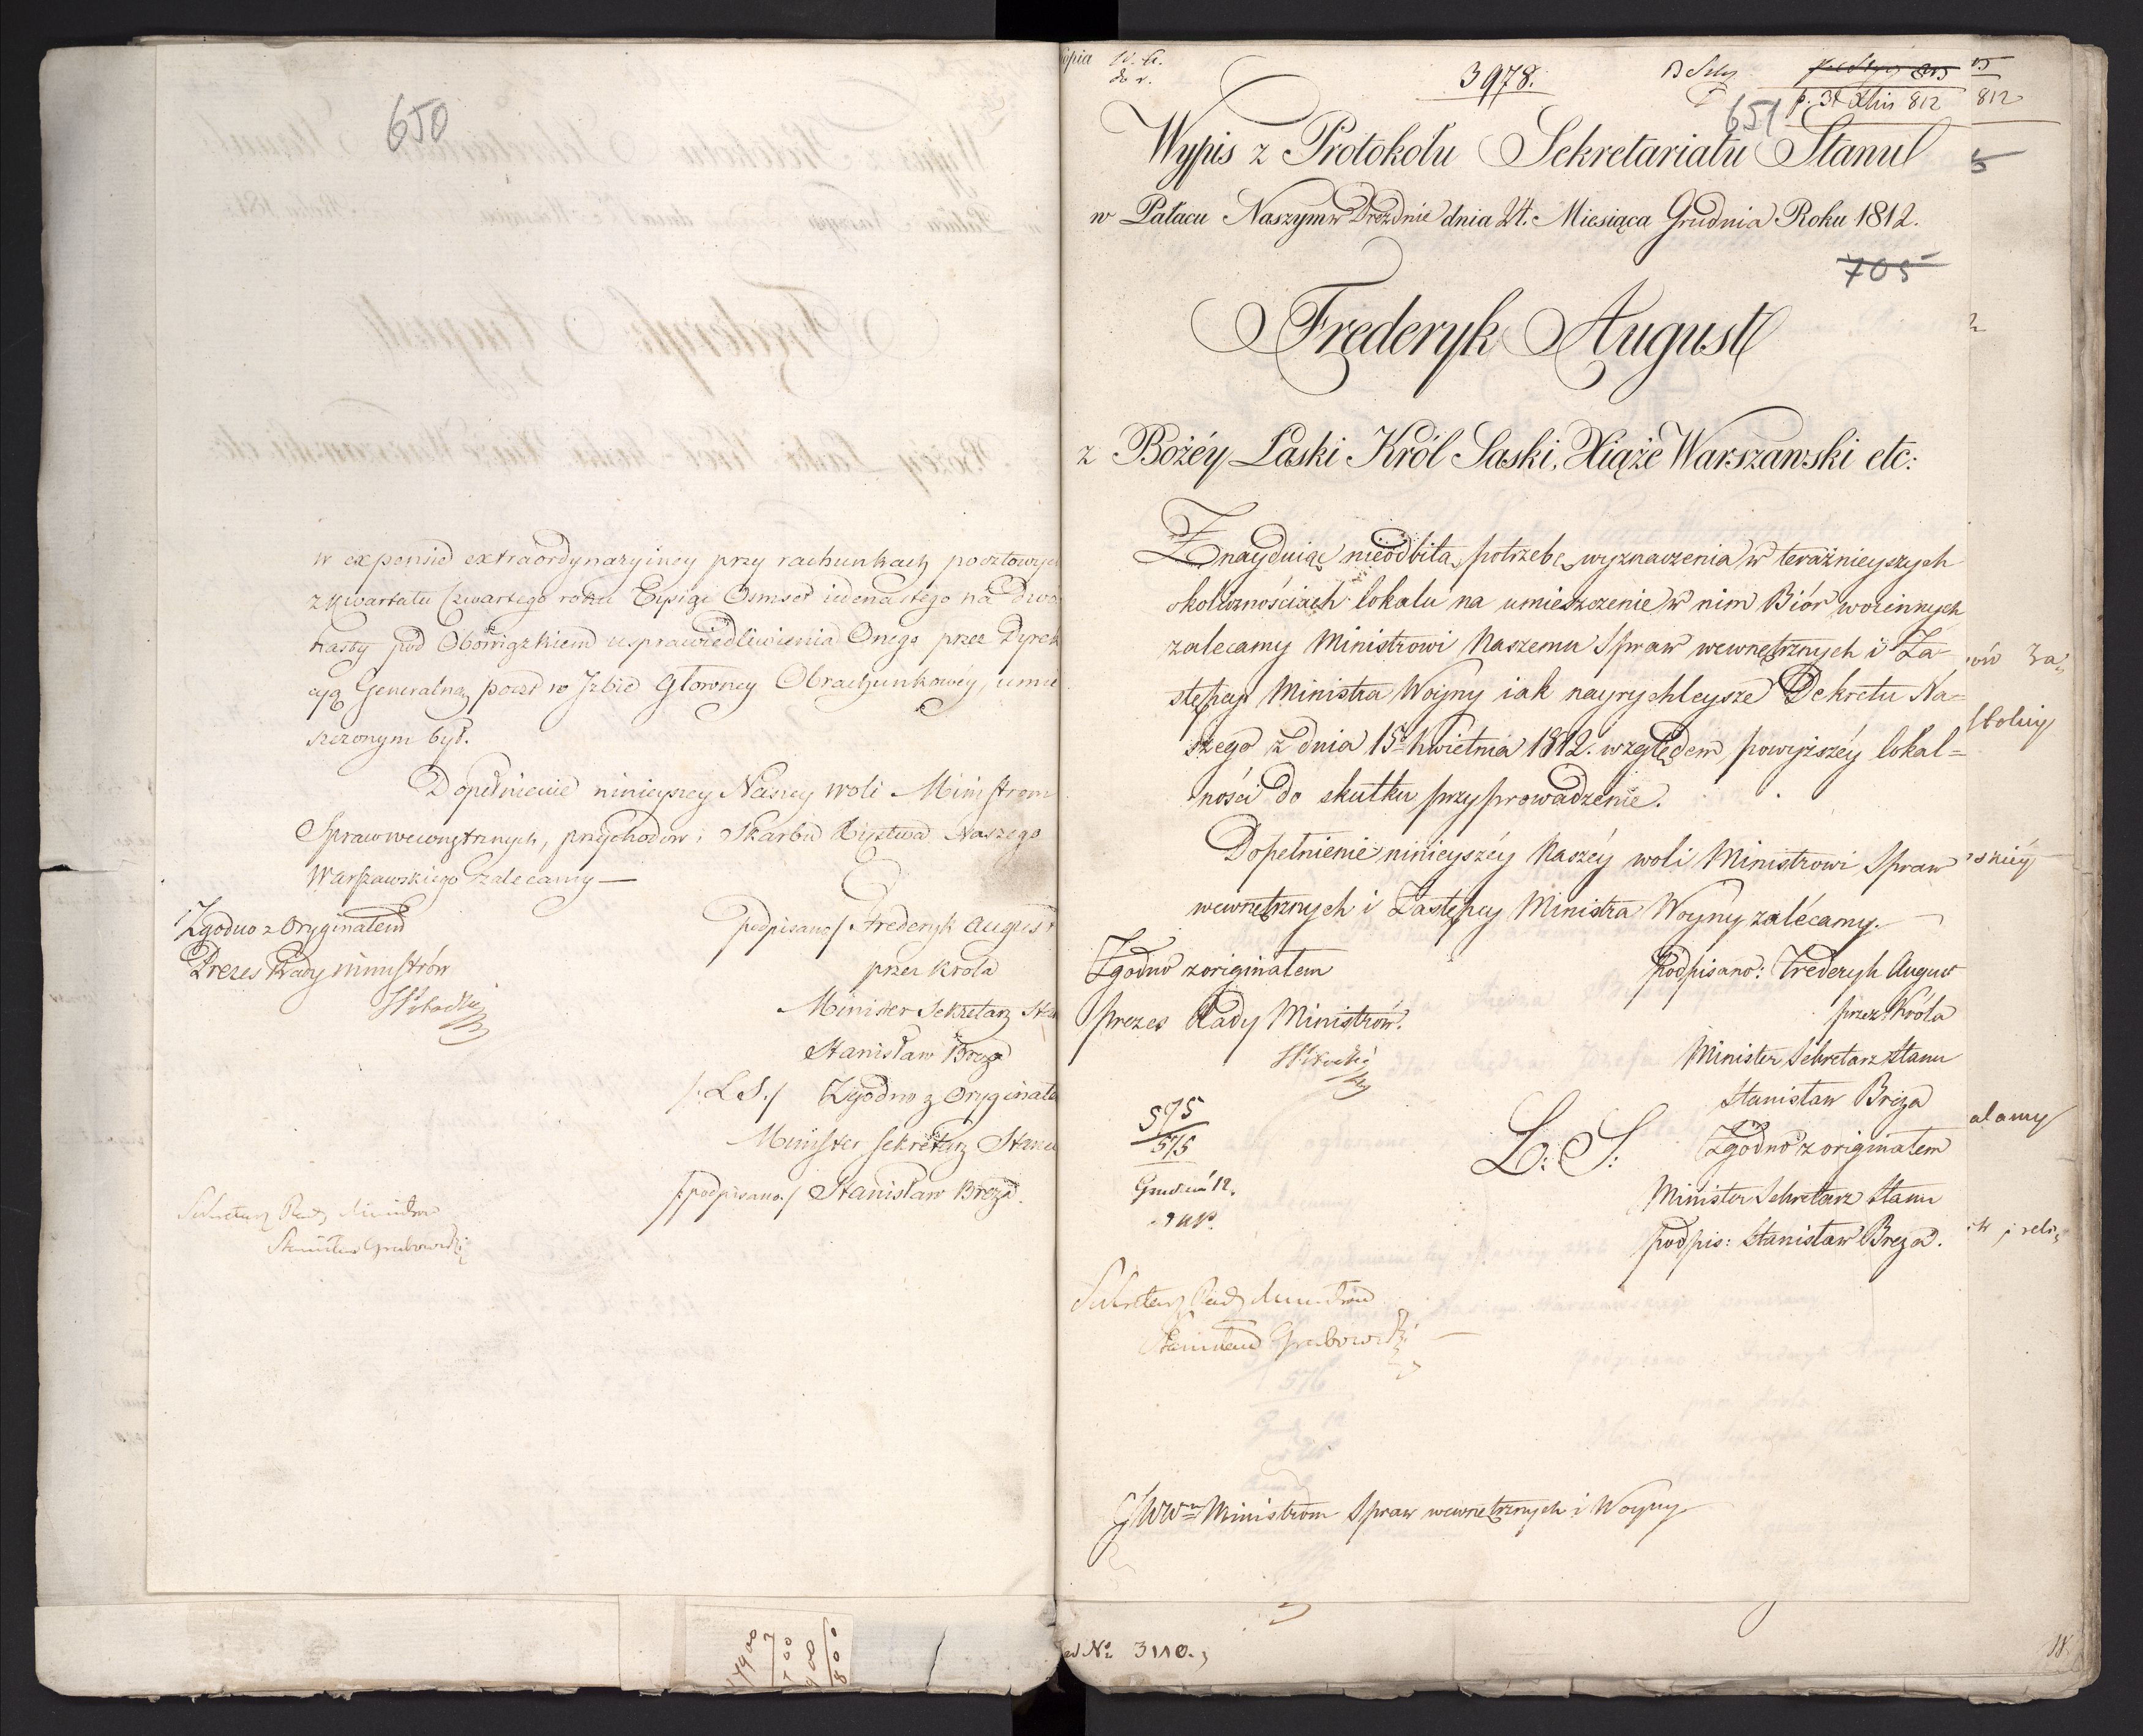 650
w expensie extraordynaryiney przy rachunkach pocztowych
z kwartału czwartego roku Tysiąc Osmset iedenastego na dwa
nasty pod Obowiązkiem usprawiedliwienia Onego przez Dyrek
cyą Generalną poczt w Izbie Głowney Obrachunkowey, umie
szczonym był.
Dopełnienie ninieyszey Naszey woli Ministrom
Spraw wewnętrznych, przychodów i Skarbu Xięstwa Naszego
Warszawskiego zalecamy —
Zgodno z Oryginałem
Prezes Rady ministrów
podpisano / Frederyk August
przez Krola
Minister Sekretarz Stanu
Stanisław Breza
/: L. S. / Zgodno z Oryginałe
Minister Sekretarz Stanu
/: podpisano / Stanisław Breza.
Sekretarz Rady Ministrów
Stanisław Grabowski
opia
3978.
p. 31 Xbris 812
812
651
Wypis z Protokołu Sekretariatu Stanu
5
w Pałacu Naszym w Dreźnie dnia 24. Miesiąca Grudnia Roku 1812.
705
Frederyk August
z Bożéy Łaski Król Saski, Xiąże Warszawski etc:
Znayduiąc nieodbitą potrzebę wyznaczenia w teraźnieyszych
okolicznościach lokalu na umieszczenie w nim Biór woiennych
zalecamy Ministrowi Naszemu Spraw wewnętrznych i Za-
stępcy Ministra Woyny iak nayrychleysze Dekretu Na=
szego z dnia 15º Kwietnia 1812. względem powyższéy lokal=
ności do skutku przyprowadzenie.
Dopełnienie ninieyszéy Naszéy woli Ministrowi Spraw
wewnętrznych i Zastępcy Ministra Woyny zalécamy. —
Zgodno z originałem
Prezes Rady Ministrów.
podpisano: Frederyk August
przez Króla
Minister Sekretarz Stanu
Stanisław Breza
L: S:
Zgodno z originałem
Minister Sekretarz Stanu
podpis: Stanisław Breza.
595
575
Grudnia 12.
Sekretarz Rady Ministrów
Stanisław Grabowski —
JWWm Ministrom Spraw wewnętrznych i Woyny
ad No 3110.
alamy